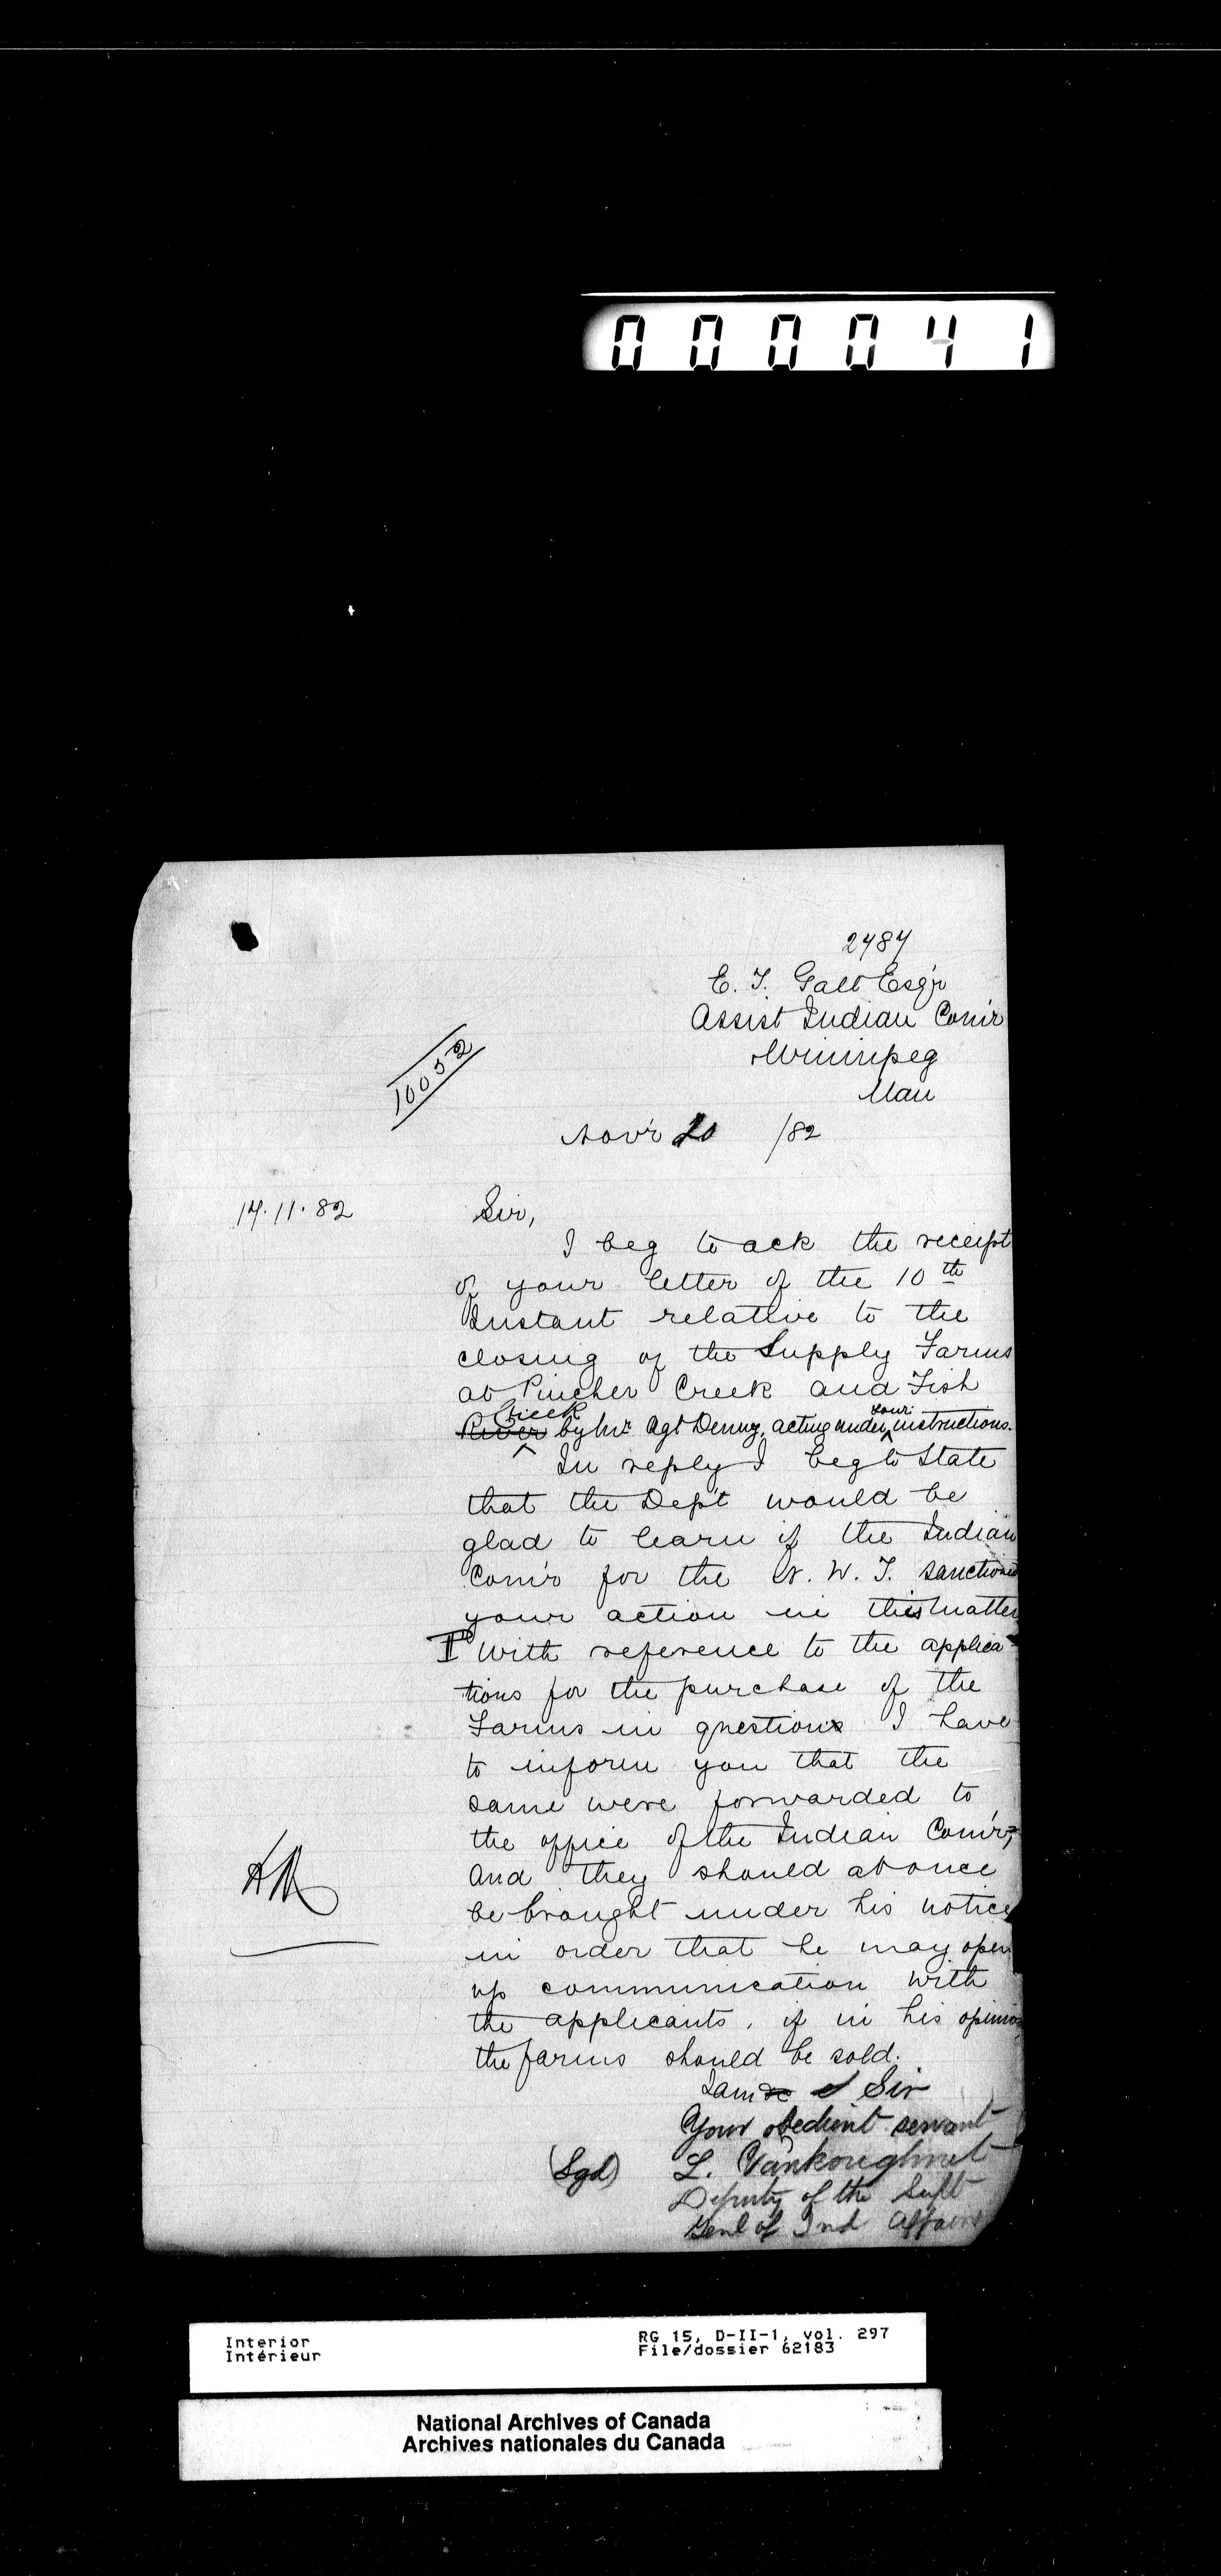 000041
2787
E. T. Galt Esq'r
Assist Indian Com'r
Winnipeg
Man
10052
Nov'r 20 /82
17.11.82
Sir,
I beg to ack the receipt
of your letter of the 10th
Instant relative to the
closing of the Supply Farms
at Pincher Creek and Fish
Creek
River by Mr Agt Denny, acting under your instructions.
In reply I beg to State
that the Dep't would be
glad to learn if the Indian
Com'r for the N. W. T. sanctioned
your action in this matter
With reference to the applica-
tions for the purchase of the
Farms in question I have
to inform you that the
same were forwarded to
the office of the Indian Com'r,
and they should at once
be brought under his notice
in order that he may open
up communication with
the applicants, if in his opinion
the farms should be sold.
I am Sir
Your obedient servant
(Sgd) L. Vankoughnet
Deputy of the Supt
Genl of Ind Affairs
Interior
Intérieur
RG 15, D-II-1, vol. 297
File/dossier 62183
National Archives of Canada
Archives nationales du Canada